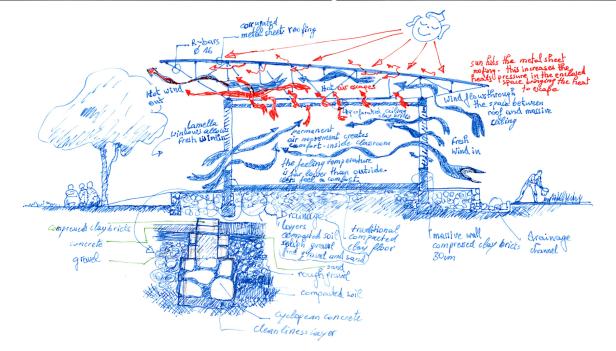 corrugated
metal sheet roofing
R-bars
Ø 16
sun hits the metal sheet
roofing - this increases the
pressure in the enclosed
space bringing the heat
to escape
Hot wind
out
Hot air escapes
Wind flows through
the space between
roof and massive
ceiling
ceiling
clay bricks
lamella
windows allows
fresh
permanent
air movement creates
comfort inside classroom
the feeling temperature
is far lower than outside
Fresh
wind in
compressed clay bricks
concrete
gravel
Drainage
layers
compacted soil
rough gravel
fine gravel and sand
traditional
compacted
clay floor
massive wall
compressed clay bricks
30 cm
Drainage
channel
sand
rough gravel
compacted soil
cyclopean concrete
cleanliness layer